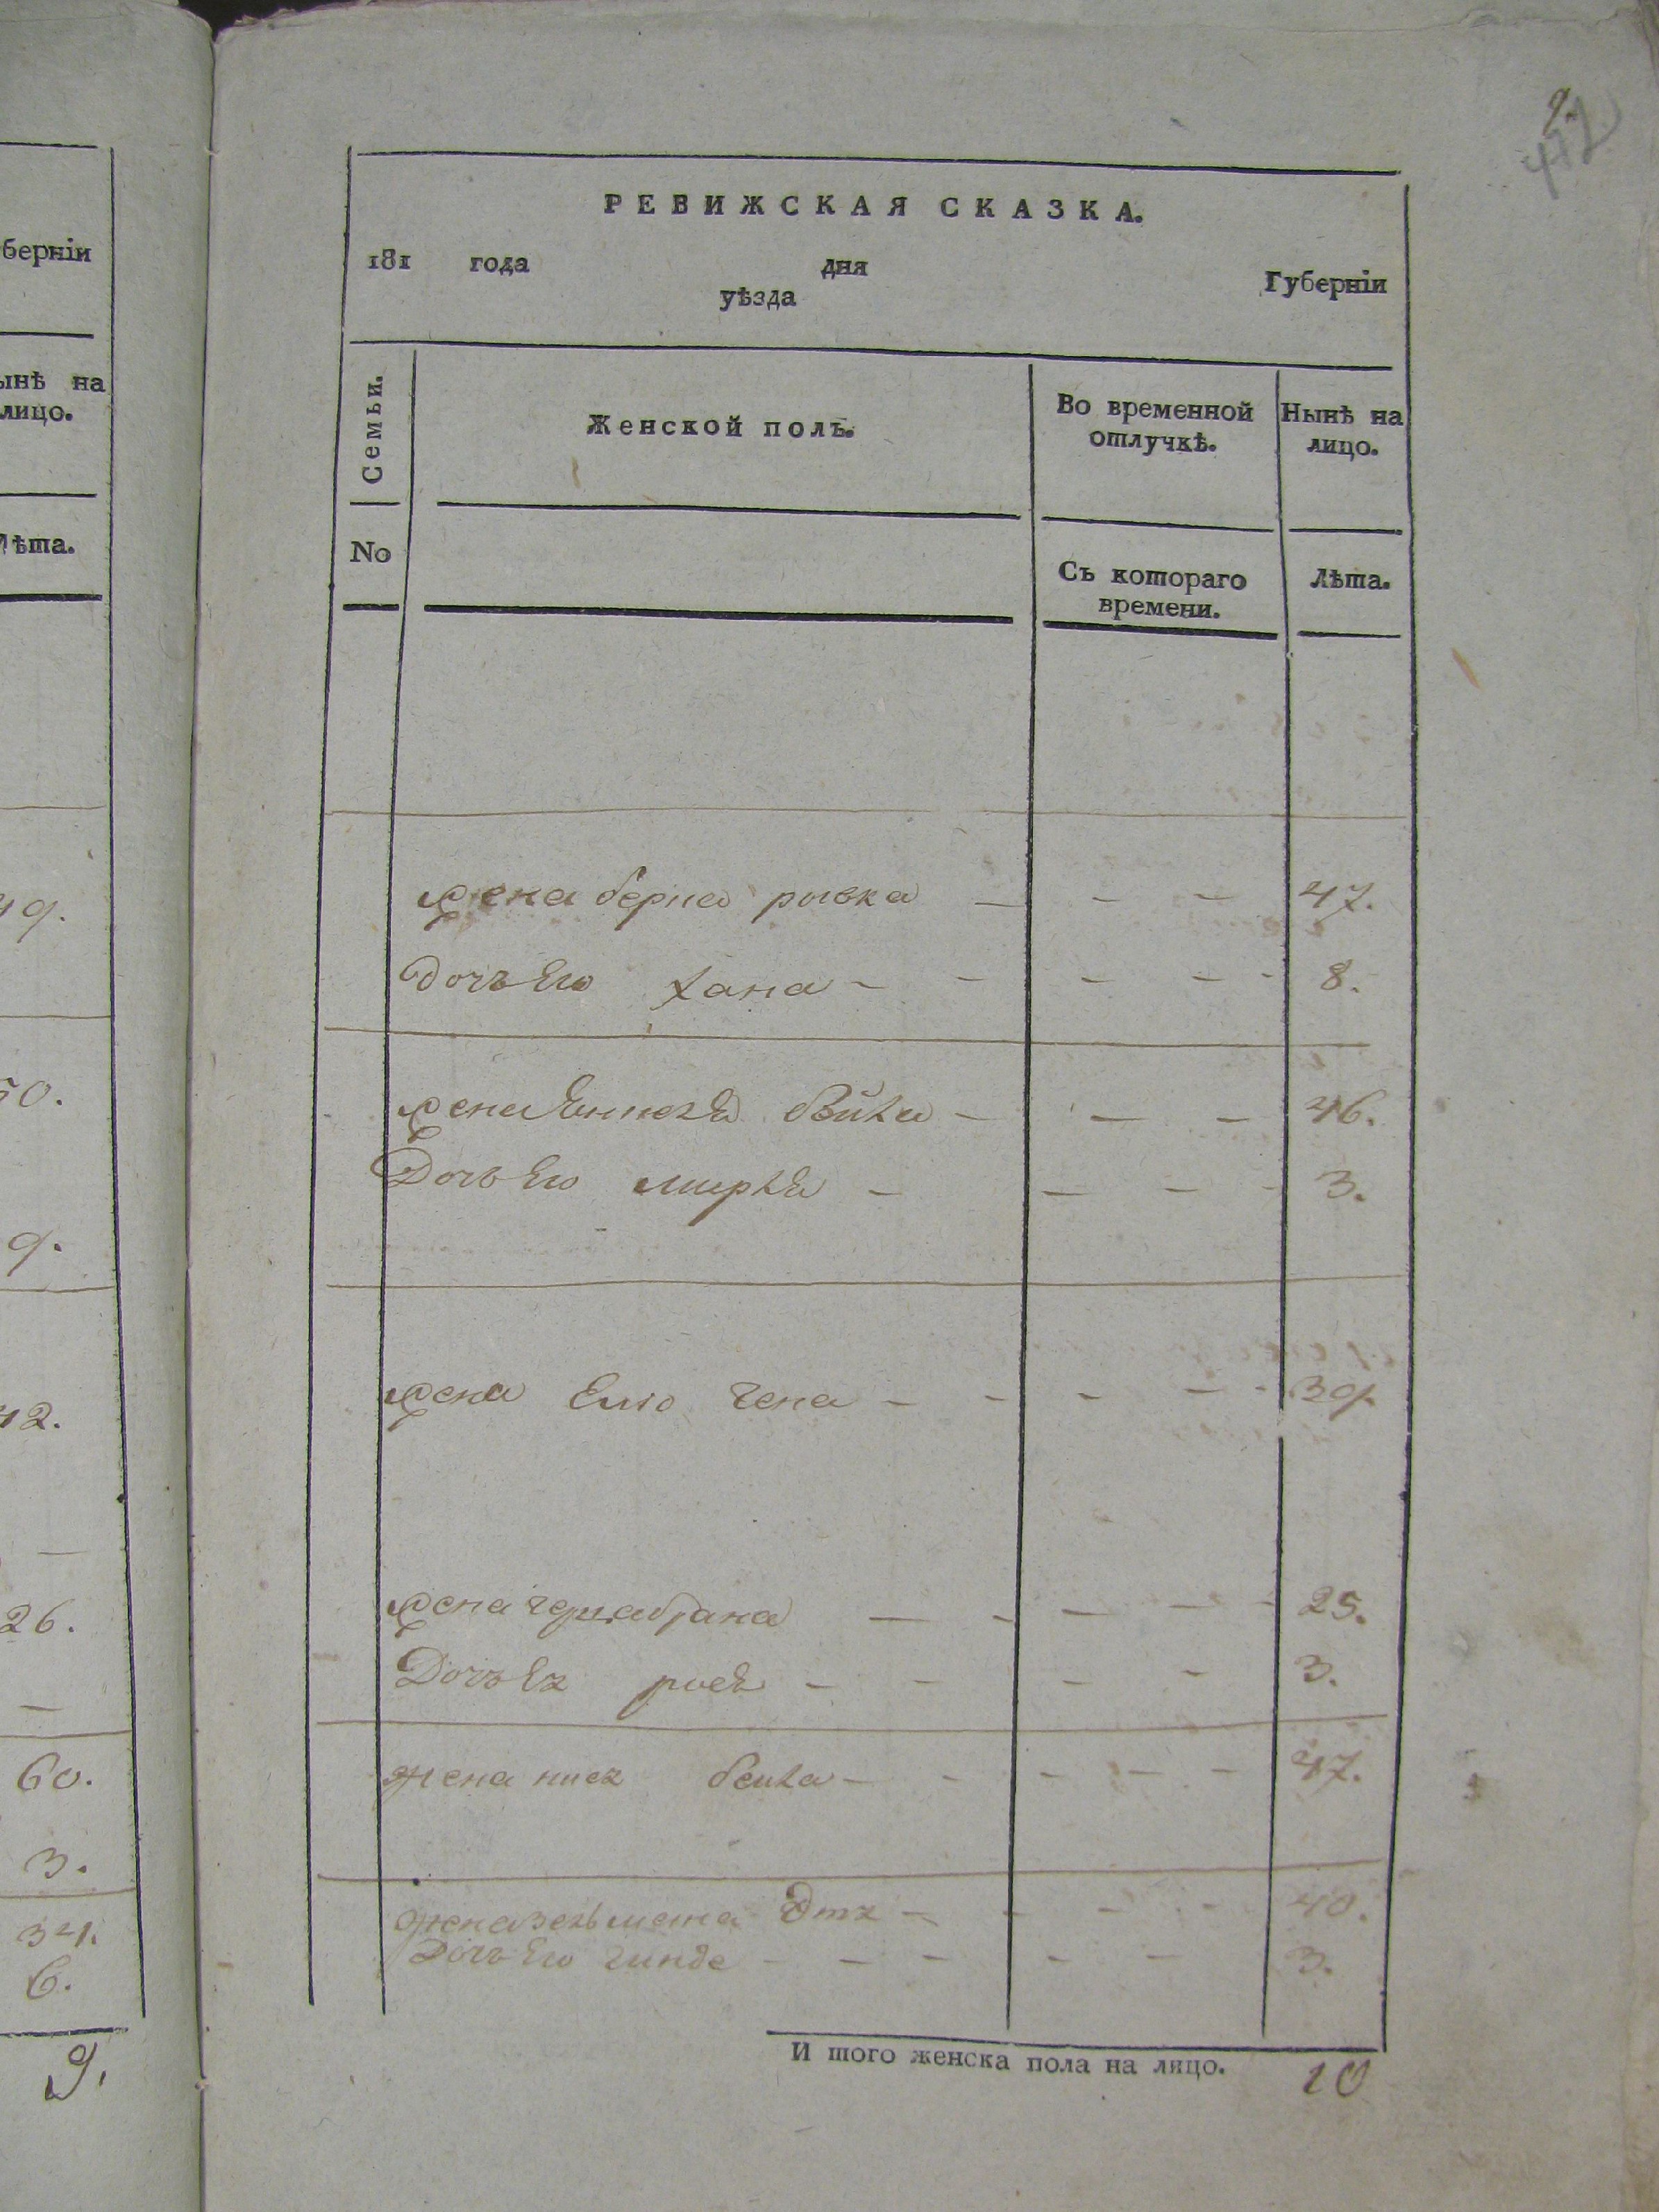 9.
472
берніи
ынѣ на
лицо.
Лѣта.
49.
50.
9.
42.
—
26.
—
60.
3.
34.
6.
9.
РЕВИЖСКАЯ СКАЗКА.
181 года дня Губерніи
уѣзда
Семьи.
Женской полъ.
Во временной отлучкѣ.
Нынѣ на лицо.
No
Съ котораго времени.
Лѣта.
жена берка ривка — — — 47.
дочь Его хана — — — — 8.
жена — — — 46.
Дочь Его мирка — — — — 3.
жена Елю — — — — 39.
жена — — — — — 25.
Дочь Ех — — — — 3.
жена бейла — — — — — 47.
жена зельмана — — — — 40.
Дочь Его гинде — — — — — 3.
И того женска пола на лицо. 10